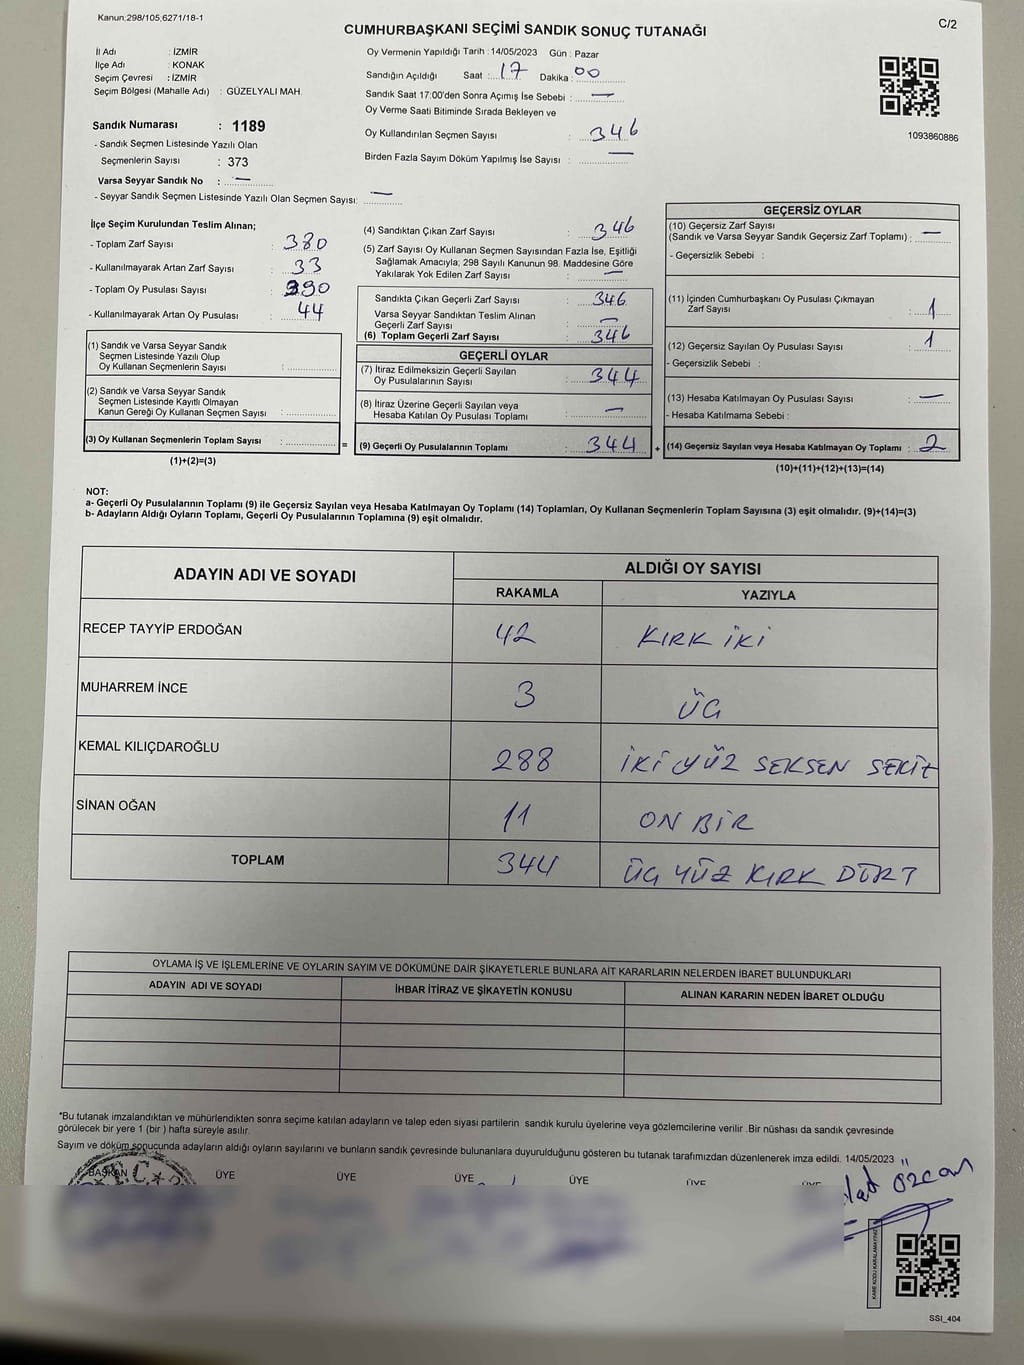 Kanun;298/105,6271/18-1
C/2
CUMHURBAŞKANI SEÇİMİ SANDIK SONUÇ TUTANAĞI
İl Adı : İZMİR
İlçe Adı : KONAK
Seçim Çevresi : İZMİR
Seçim Bölgesi (Mahalle Adı) : GÜZELYALI MAH.
Oy Vermenin Yapıldığı Tarih :14/05/2023 Gün : Pazar
Sandığın Açıldığı Saat : 17 Dakika : 00
Sandık Saat 17:00'den Sonra Açımış İse Sebebi : —
Oy Verme Saati Bitiminde Sırada Bekleyen ve
Oy Kullandırılan Seçmen Sayısı : 346
Birden Fazla Sayım Döküm Yapılmış İse Sayısı : —
1093860886
Sandık Numarası : 1189
- Sandık Seçmen Listesinde Yazılı Olan
Seçmenlerin Sayısı : 373
Varsa Seyyar Sandık No : —
- Seyyar Sandık Seçmen Listesinde Yazılı Olan Seçmen Sayısı: —
İlçe Seçim Kurulundan Teslim Alınan;
- Toplam Zarf Sayısı : 380
- Kullanılmayarak Artan Zarf Sayısı : 33
- Toplam Oy Pusulası Sayısı : 390
- Kullanılmayarak Artan Oy Pusulası : 44
(1) Sandık ve Varsa Seyyar Sandık
Seçmen Listesinde Yazılı Olup
Oy Kullanan Seçmenlerin Sayısı :
(2) Sandık ve Varsa Seyyar Sandık
Seçmen Listesinde Kayıtlı Olmayan
Kanun Gereği Oy Kullanan Seçmen Sayısı :
(3) Oy Kullanan Seçmenlerin Toplam Sayısı :
(1)+(2)=(3)
=
(4) Sandıktan Çıkan Zarf Sayısı : 346
(5) Zarf Sayısı Oy Kullanan Seçmen Sayısından Fazla İse, Eşitliği
Sağlamak Amacıyla; 298 Sayılı Kanunun 98. Maddesine Göre
Yakılarak Yok Edilen Zarf Sayısı : —
Sandıkta Çıkan Geçerli Zarf Sayısı : 346
Varsa Seyyar Sandıktan Teslim Alınan
Geçerli Zarf Sayısı : —
(6) Toplam Geçerli Zarf Sayısı : 346
GEÇERLİ OYLAR
(7) İtiraz Edilmeksizin Geçerli Sayılan
Oy Pusulalarının Sayısı : 344
(8) İtiraz Üzerine Geçerli Sayılan veya
Hesaba Katılan Oy Pusulası Toplamı : —
(9) Geçerli Oy Pusulalarının Toplamı : 344
+
GEÇERSİZ OYLAR
(10) Geçersiz Zarf Sayısı
(Sandık ve Varsa Seyyar Sandık Geçersiz Zarf Toplamı) : —
- Geçersizlik Sebebi :
(11) İçinden Cumhurbaşkanı Oy Pusulası Çıkmayan
Zarf Sayısı : 1
(12) Geçersiz Sayılan Oy Pusulası Sayısı : 1
- Geçersizlik Sebebi :
(13) Hesaba Katılmayan Oy Pusulası Sayısı : —
- Hesaba Katılmama Sebebi :
(14) Geçersiz Sayılan veya Hesaba Katılmayan Oy Toplamı : 2
(10)+(11)+(12)+(13)=(14)
NOT:
a- Geçerli Oy Pusulalarının Toplamı (9) ile Geçersiz Sayılan veya Hesaba Katılmayan Oy Toplamı (14) Toplamları, Oy Kullanan Seçmenlerin Toplam Sayısına (3) eşit olmalıdır. (9)+(14)=(3)
b- Adayların Aldığı Oyların Toplamı, Geçerli Oy Pusulalarının Toplamına (9) eşit olmalıdır.
ADAYIN ADI VE SOYADI
ALDIĞI OY SAYISI
RAKAMLA YAZIYLA
RECEP TAYYİP ERDOĞAN 42 KIRK İKİ
MUHARREM İNCE 3 ÜÇ
KEMAL KILIÇDAROĞLU 288 İKİ YÜZ SEKSEN SEKİZ
SİNAN OĞAN 11 ON BİR
TOPLAM 344 ÜÇ YÜZ KIRK DÖRT
OYLAMA İŞ VE İŞLEMLERİNE VE OYLARIN SAYIM VE DÖKÜMÜNE DAİR ŞİKAYETLERLE BUNLARA AİT KARARLARIN NELERDEN İBARET BULUNDUKLARI
ADAYIN ADI VE SOYADI İHBAR İTİRAZ VE ŞİKAYETİN KONUSU ALINAN KARARIN NEDEN İBARET OLDUĞU
*Bu tutanak imzalandıktan ve mühürlendikten sonra seçime katılan adayların ve talep eden siyasi partilerin sandık kurulu üyelerine veya gözlemcilerine verilir .Bir nüshası da sandık çevresinde
görülecek bir yere 1 (bir ) hafta süreyle asılır.
Sayım ve döküm sonucunda adayların aldığı oyların sayılarını ve bunların sandık çevresinde bulunanlara duyurulduğunu gösteren bu tutanak tarafımızdan düzenlenerek imza edildi. 14/05/2023
BAŞKAN ÜYE ÜYE ÜYE ÜYE ÜYE ÜYE
T.C.
Özcan
KARE KODU KARALAMAYINIZ
SSI_404